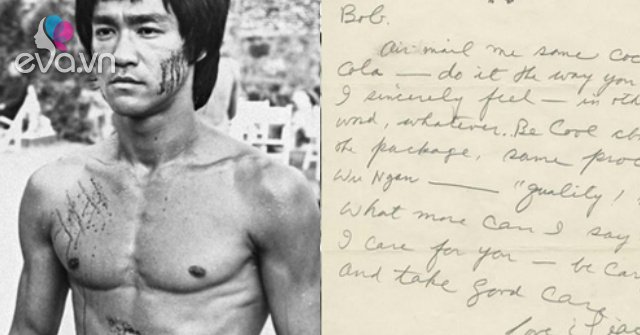 eva.vn
Bob.
Air mail me some coc
Cola — do it the way you
I sincerely feel — in oth
word, whatever. Be Cool ab
the package, same proc
Wu Ngan — "quality!
What more can I say
I care for you — be car
and take good care